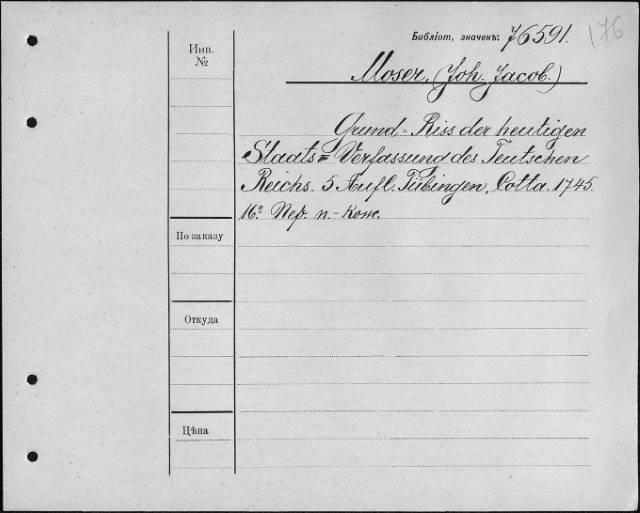 Библіот, значекъ: 76591.
176
Инв.
№
Moser, (Joh. Jacob.)
Grund-Riss der heutigen
Staats=Verfassung des Teutschen
Reichs. 5 Aufl. Tübingen, Cotta. 1745.
16º Пер. п.-кож.
По заказу
Откуда
Цѣна